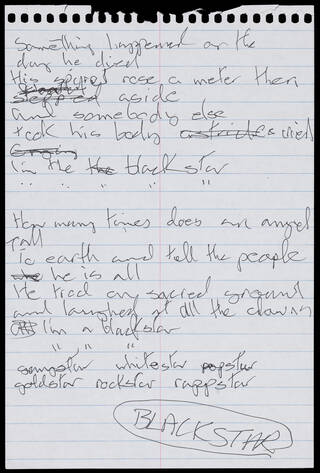 Something happened on the
day he died
His spirit rose a meter then
stepped aside
and somebody else
took his body & cried
I'm the the blackstar
" " " "
How many times does an angel
fall
To earth and tell the people
he is all
He trod on sacred ground
and laughed at all the clowns
I'm a blackstar
" " "
gangstar whitestar popstar
goldstar rockstar rappstar
BLACKSTAR